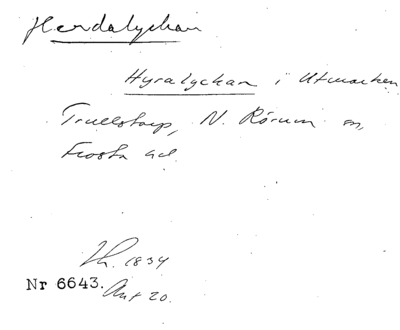 Herdalyckan
Hyralyckan i Utmarken
Trulstorp, N. Rörum sn,
Frosta hd.
Lh. 1834
Nr 6643. Akt 20.